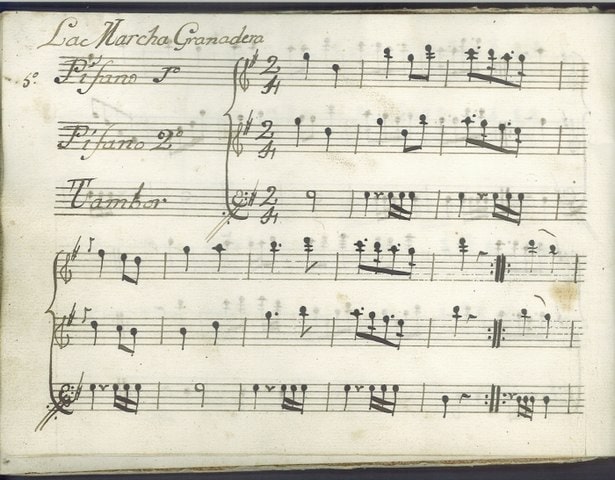 La Marcha Granadera
5º Pifano 1º
2
4
Pifano 2º
2
4
Tambor
2
4